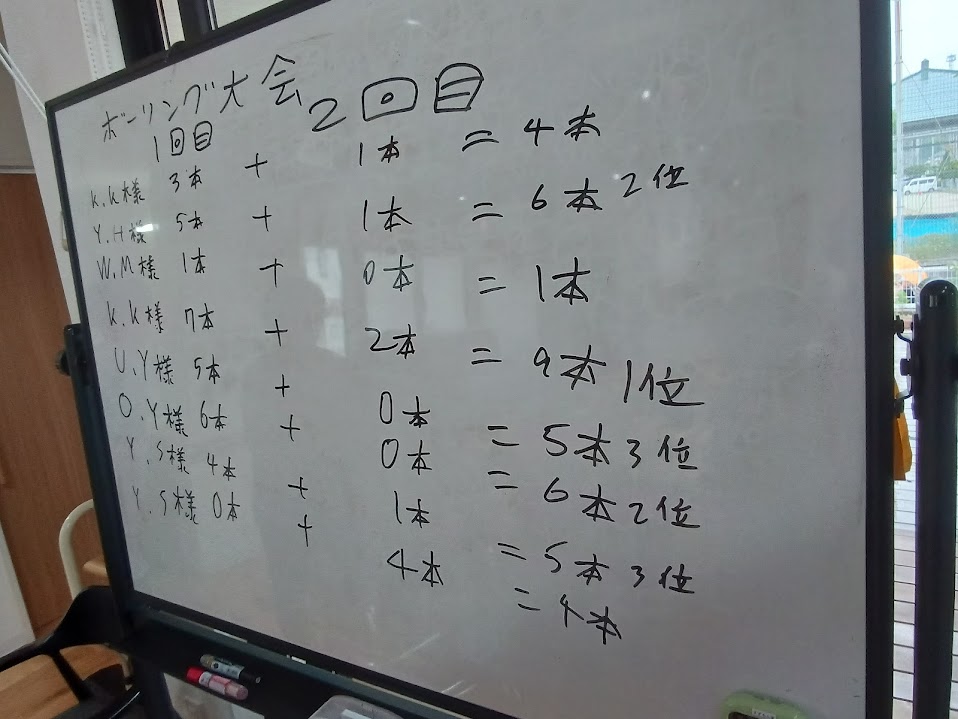 ボーリング大会
1回目 2回目
K.K様 3本 + 1本 = 4本
Y.H様 5本 + 1本 = 6本 2位
W.M様 1本 + 0本 = 1本
K.K様 7本 + 2本 = 9本 1位
U.Y様 5本 + 0本 = 5本 3位
O.Y様 6本 + 0本 = 6本 2位
Y.S様 4本 + 1本 = 5本 3位
Y.S様 0本 + 4本 = 4本